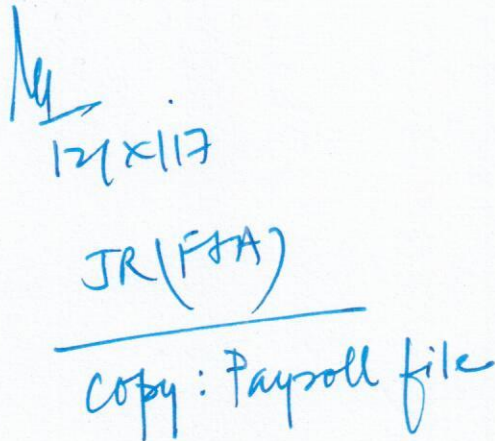 12/X/17
JR(F&A)
copy: Payroll file